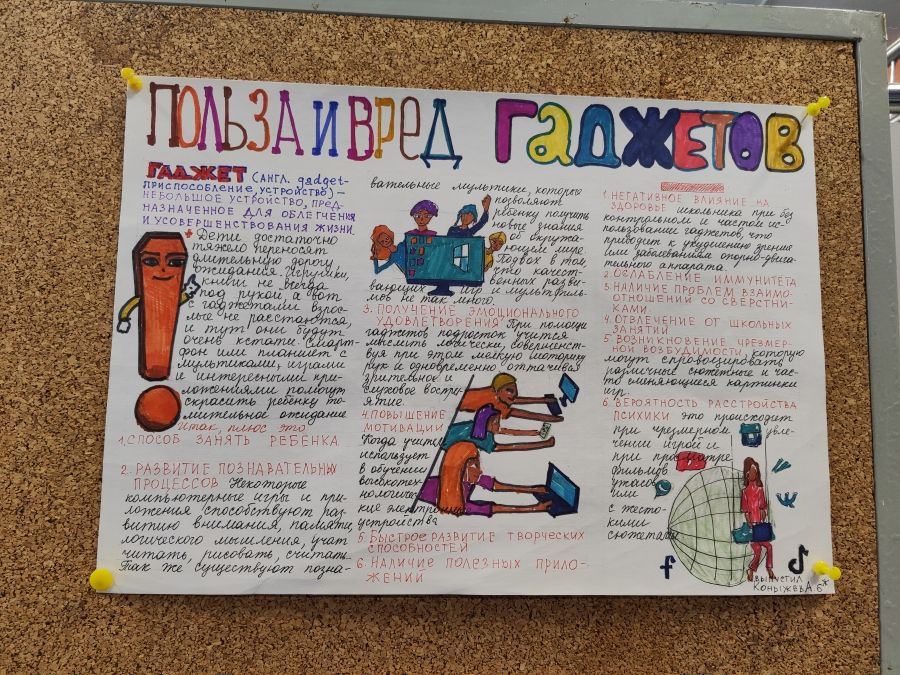 ПОЛЬЗА И ВРЕД ГАДЖЕТОВ
ГАДЖЕТ (АНГЛ. gadget-
ПРИСПОСОБЛЕНИЕ, УСТРОЙСТВО) –
НЕБОЛЬШОЕ УСТРОЙСТВО, ПРЕД-
НАЗНАЧЕННОЕ ДЛЯ ОБЛЕГЧЕНИЯ
И УСОВЕРШЕНСТВОВАНИЯ ЖИЗНИ.
Дети достаточно
тяжело переносят
длительную дорогу
ожидания. Игрушки,
книги не всегда
под рукой а вот
с гаджетами взрос-
лые не расстаются,
и тут они будут
очень кстати. Смарт-
фон или планшет с
мультиками, играми
и интересными при-
ложениями помогут
скрасить ребёнку то-
мительное ожидание
итак, плюс это
1. СПОСОБ ЗАНЯТЬ РЕБЕНКА.
2. РАЗВИТИЕ ПОЗНАВАТЕЛЬНЫХ
ПРОЦЕССОВ Некоторые
компьютерные игры и при-
ложения способствуют раз-
витию внимания, памяти,
логического мышления, учат
читать, рисовать, считать.
Так же, существуют позна-
вательные мультики, которые
позволяют
ребёнку получить
новые знания
об окружа-
ющем мире.
Подвох в том
что качест-
венных разви-
вающих игр и мультфиль-
мов не так много.
3. ПОЛУЧЕНИЕ ЭМОЦИОНАЛЬНОГО
УДОВЛЕТВОРЕНИЯ При помощи
гаджетов подросток учится
мыслить логически, совершенст-
вуя при этом мелкую моторику
рук и одновременно оттачивая
зрительное и
слуховое воспри-
ятие.
4. ПОВЫШЕНИЕ
МОТИВАЦИИ
Когда учитель
использует
в обучении
высокотех-
нологичес-
кие электронные
устройства
5. БЫСТРОЕ РАЗВИТИЕ ТВОРЧЕСКИХ
СПОСОБНОСТЕЙ
6. НАЛИЧИЕ ПОЛЕЗНЫХ ПРИЛО-
ЖЕНИЙ
1. НЕГАТИВНОЕ ВЛИЯНИЕ НА
ЗДОРОВЬЕ школьника при без
контрольном и частом ис-
пользовании гаджетов, что
приводит к ухудшению зрения
или заболеваниям опорно-двига-
тельного аппарата.
2. ОСЛАБЛЕНИЕ ИММУНИТЕТА
3. НАЛИЧИЕ ПРОБЛЕМ ВЗАИМО-
ОТНОШЕНИЙ СО СВЕРСТНИ-
КАМИ.
4. ОТВЛЕЧЕНИЕ ОТ ШКОЛЬНЫХ
ЗАНЯТИЙ
5. ВОЗНИКНОВЕНИЕ ЧРЕЗМЕР-
НОЙ ВОЗБУДИМОСТИ, которую
могут спровоцировать
различные сюжетные и час-
то сменяющиеся картинки
игр.
6. ВЕРОЯТНОСТЬ РАССТРОЙСТВА
ПСИХИКИ это происходит
при чрезмерном увле-
чении игрой и
при просмотре
фильмов
ужасов
или
с жесто-
кими
сюжетами
ВЫПУСТИЛ
КОНЫЖЕВ А. 6"ж"